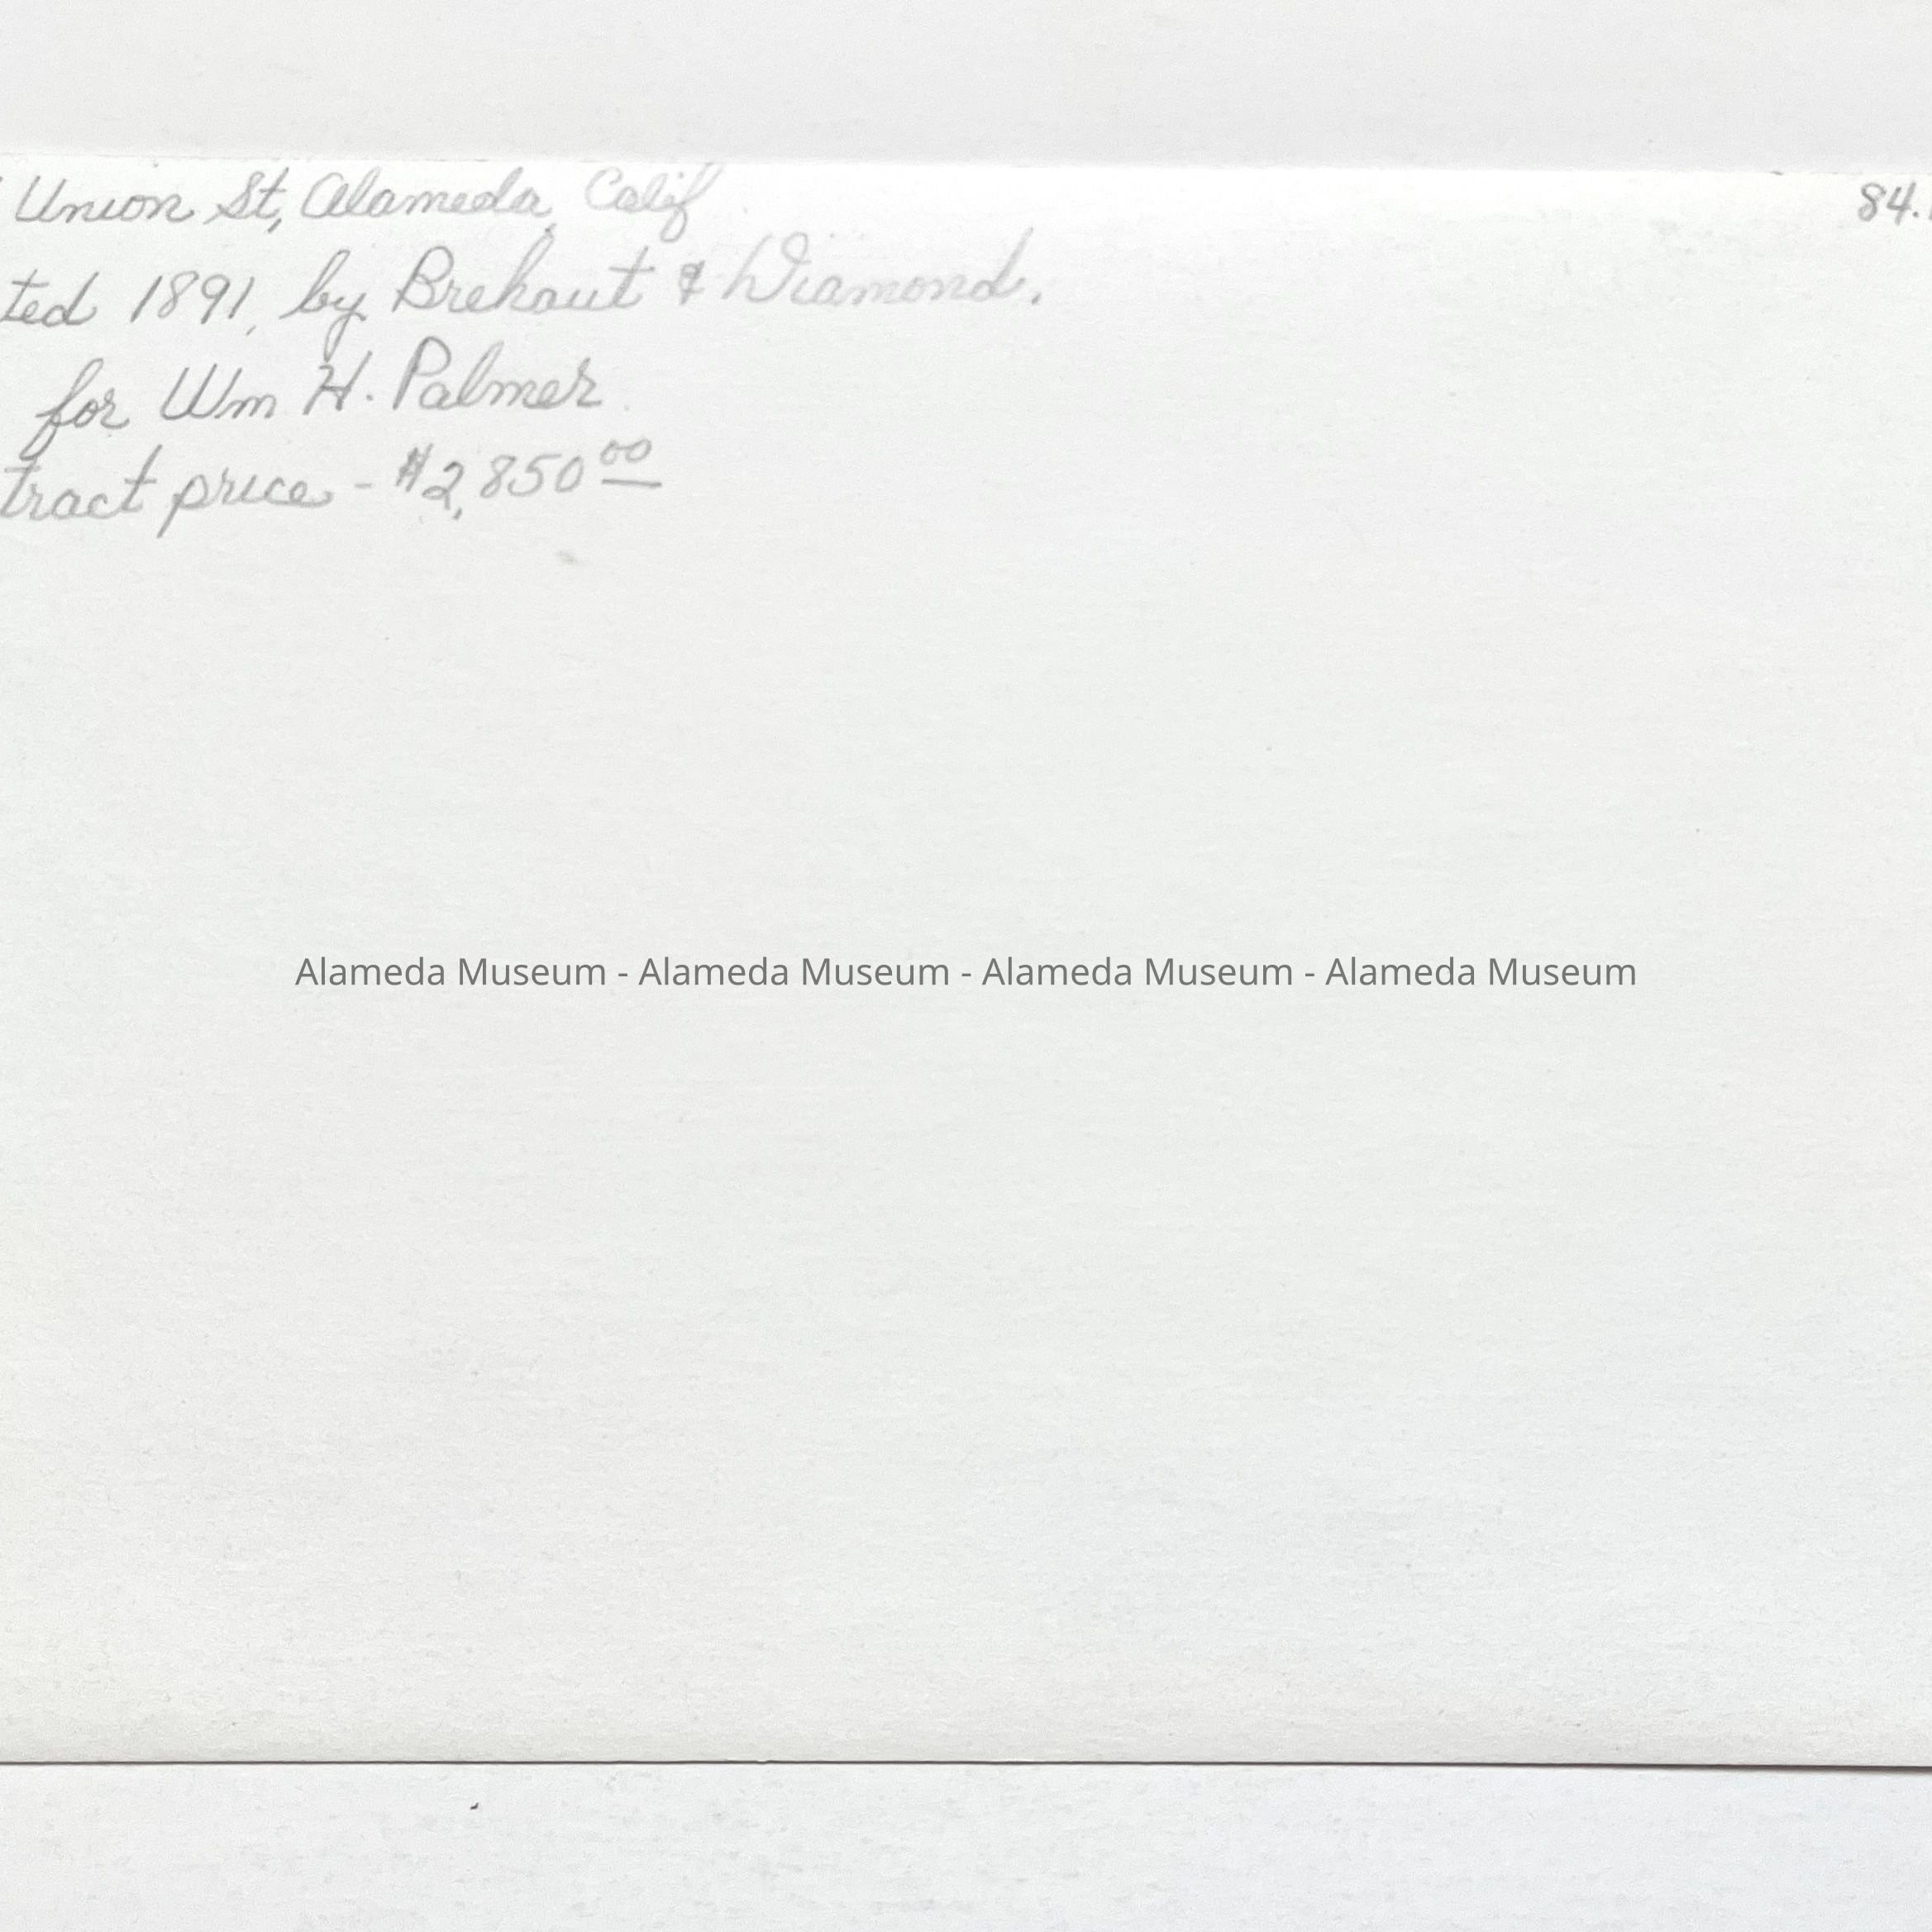 Union St, Alameda, Calif
84.
ted 1891, by Brehaut & Diamond.
for Wm H. Palmer
tract price - $2,850 00
Alameda Museum - Alameda Museum - Alameda Museum - Alameda Museum